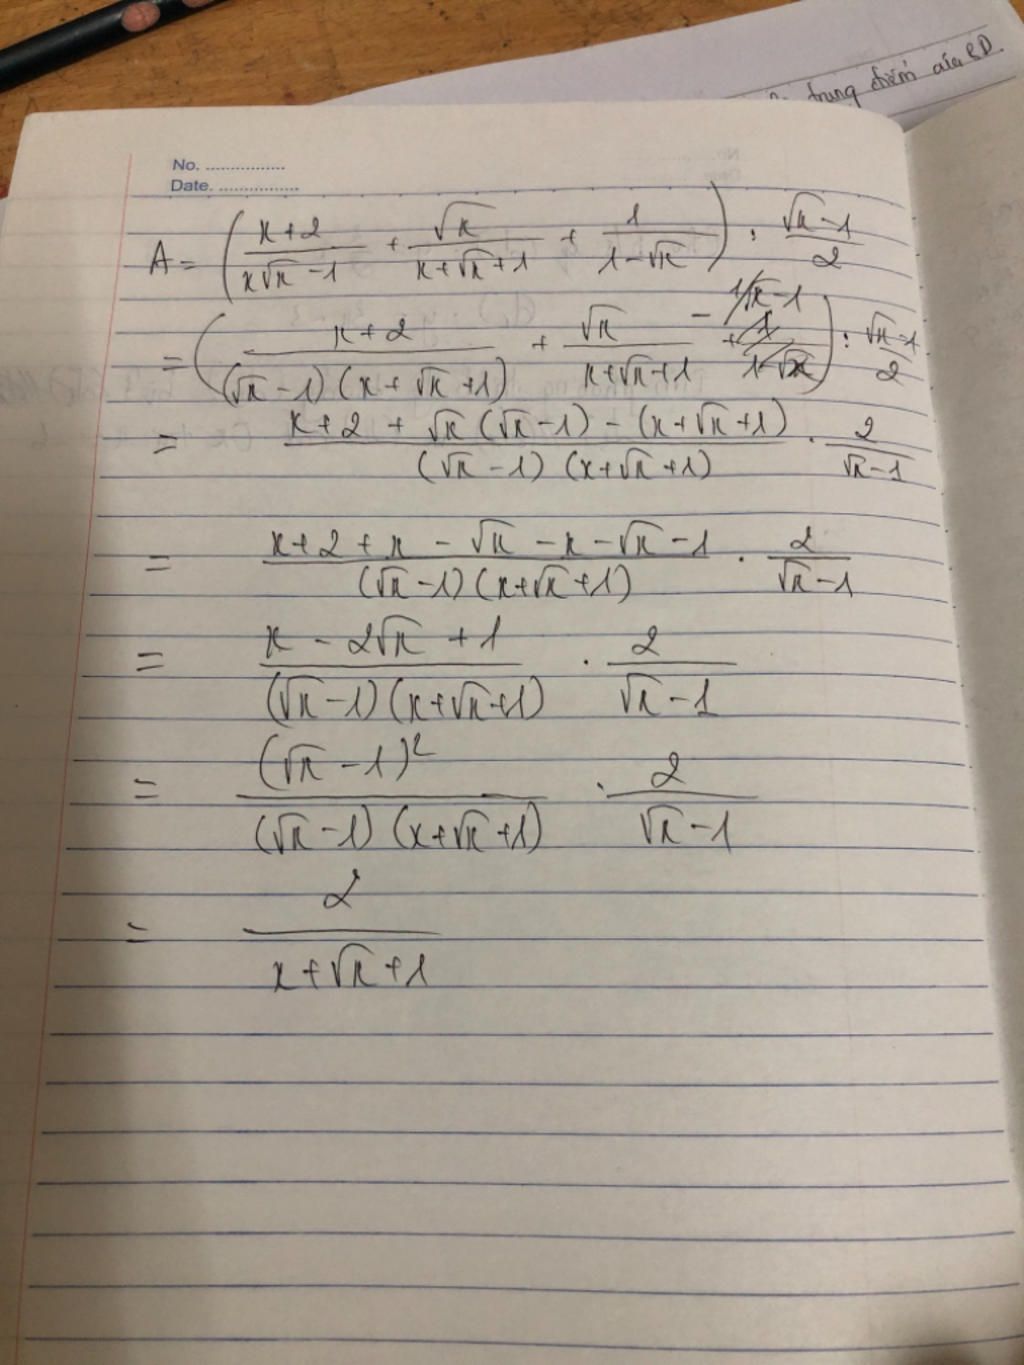 trung điểm của CD.
No. ................
Date. ................
A = ( (x+2)/(x√x −1) + √x/(x+√x+1) + 1/(1−√x) ) : (√x −1)/2
= ( (x+2)/((√x −1)(x+√x+1)) + √x/(x+√x+1) − 1/(√x−1) ) : (√x−1)/2
= (x+2 + √x(√x−1) − (x+√x+1))/((√x −1)(x+√x+1)) . 2/(√x−1)
= (x+2+x − √x − x − √x − 1)/((√x −1)(x+√x+1)) . 2/(√x−1)
= (x − 2√x + 1)/((√x−1)(x+√x+1)) . 2/(√x−1)
= (√x −1)²/((√x−1)(x+√x+1)) . 2/(√x−1)
= 2/(x+√x+1)